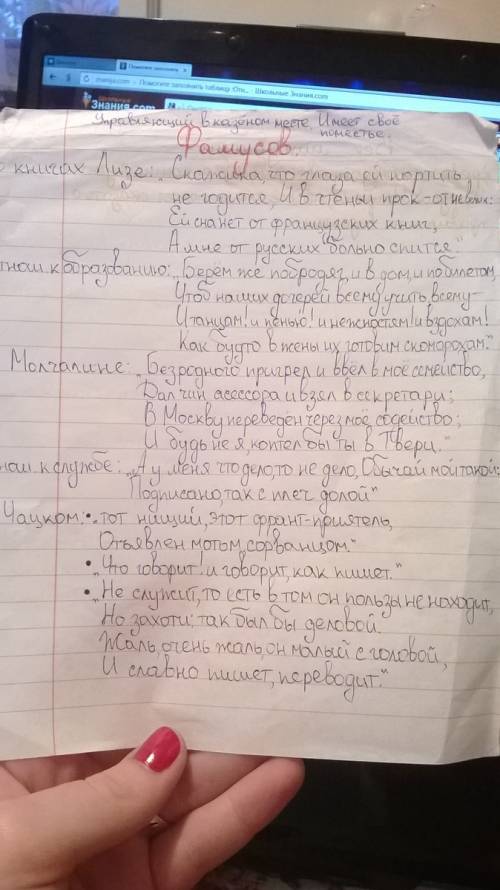 Помогите заполнить
znanija.com — Помогите заполнить таблицу :Отн... - Школьные Знания.com
Знания.com
Управляющий в казёном месте. Имеет своё
поместье.
Фамусов.
книгах Лизе: „Скажи-ка, что глаза ей портить
не годится, И в чтеньи прок - от невелик:
Ей сна нет от французских книг,
А мне от русских больно спится"
к образованию: „Берём же побродяг, и в дом, и по билетам,
Чтоб наших дочерей всему учить, всему-
И танцам! и пенью! и нежностям! и вздохам!
Как будто в жены их готовим скоморохам."
Молчалине: „Безродного пригрел и ввёл в моё семейство,
Дал чин асессора и взял в секретари;
В Москву переведён через моё содейство;
И будь не я, коптел бы ты в Твери."
к службе: „А у меня что дело, то не дело, Обычай мой такой:
Подписано, так с плеч долой"
Чацком: • „тот нищий, этот франт-приятель,
Отъявлен мотом, сорванцом."
• „Что говорит! и говорит, как пишет."
• „Не служит, то есть в том он пользы не находит,
Но захоти: так был бы деловой.
Жаль, очень жаль, он малый с головой,
И славно пишет, переводит."